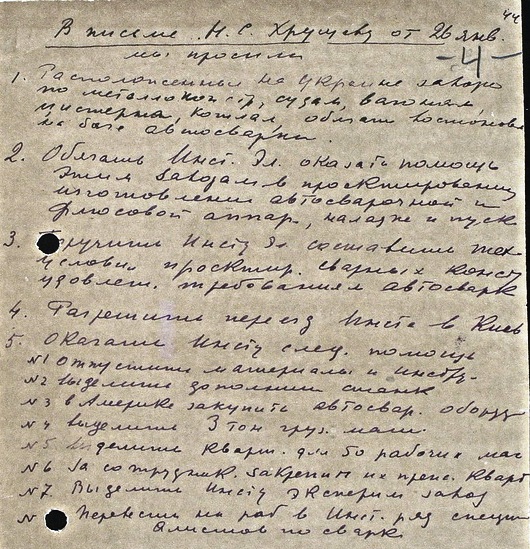 44
В письме Н. С. Хрущеву от 26 янв.
-4-
мы просили
1. Расположенным на Украине завод
по металлоконстр, судам, вагонам,
цистернам, котлам, обязать восстановл
на базе автосварки.
2. Обязать Инст. Эл. оказать помощь
этим заводам в проектировании
изготовлении автосварочной и
флюсовой аппар, наладке и пуск
3. Поручить Инсту Эл составить тех
условия проектир. сварных констр
удовлет. требованиям автосварк
4. Разрешить переезд Инста в Киев
5. Оказать Инсту след. помощь
№1 Отпустить материалы и инстру-
№2 Выделить дополнит станк
№3 в Америке закупить автосвар. оборуд
№4 выделить 3 тон груз. маш.
№5 Выделить кварт. для 50 рабочих мас
№6 За сотрудник. закрепить их преж. кварт
№7 Выделить Инсту эксперим завод
№ Перевести на раб в Инст. ряд специ
алистов по сварке